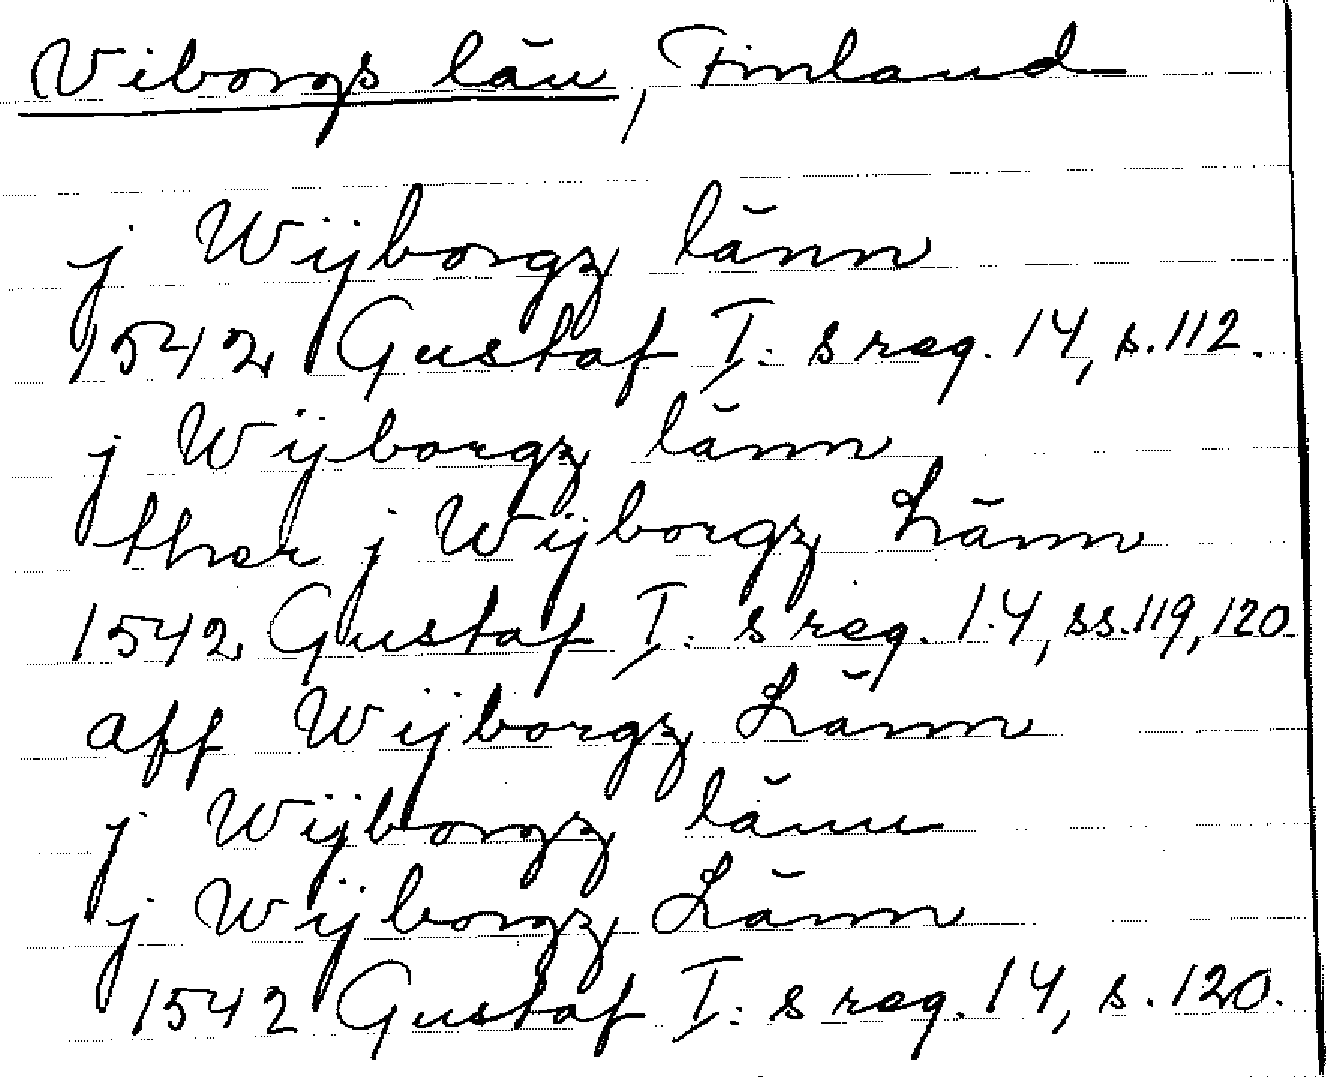 Viborgs län, Finland
j Wijborgz länn
1542 Gustaf I:s reg. 14, s. 112.
j Wijborgz länn
ther j Wijborgz Länn
1542 Gustaf I:s reg. 14, ss. 119, 120
aff Wijborgz Länn
j Wijborgz länn
j Wijborgz Länn
1542 Gustaf I:s reg. 14, s. 120.